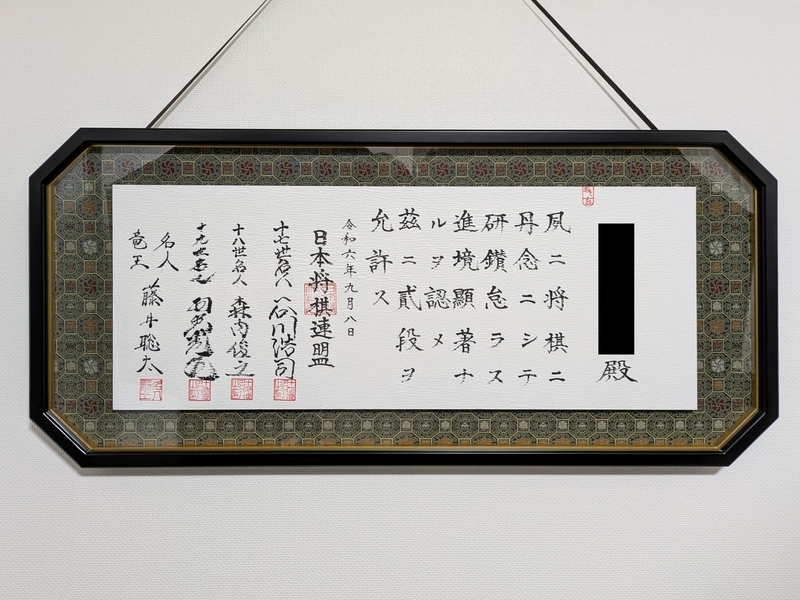 殿
夙ニ将棋ニ
丹念ニシテ
研鑽怠ラス
進境顯著ナ
ルヲ認メ
茲ニ貳段ヲ
允許ス
令和六年九月八日
日本将棋連盟
十七世名人 谷川浩司
十八世名人 森内俊之
十九世名人 羽生善治
名人
竜王
藤井聡太